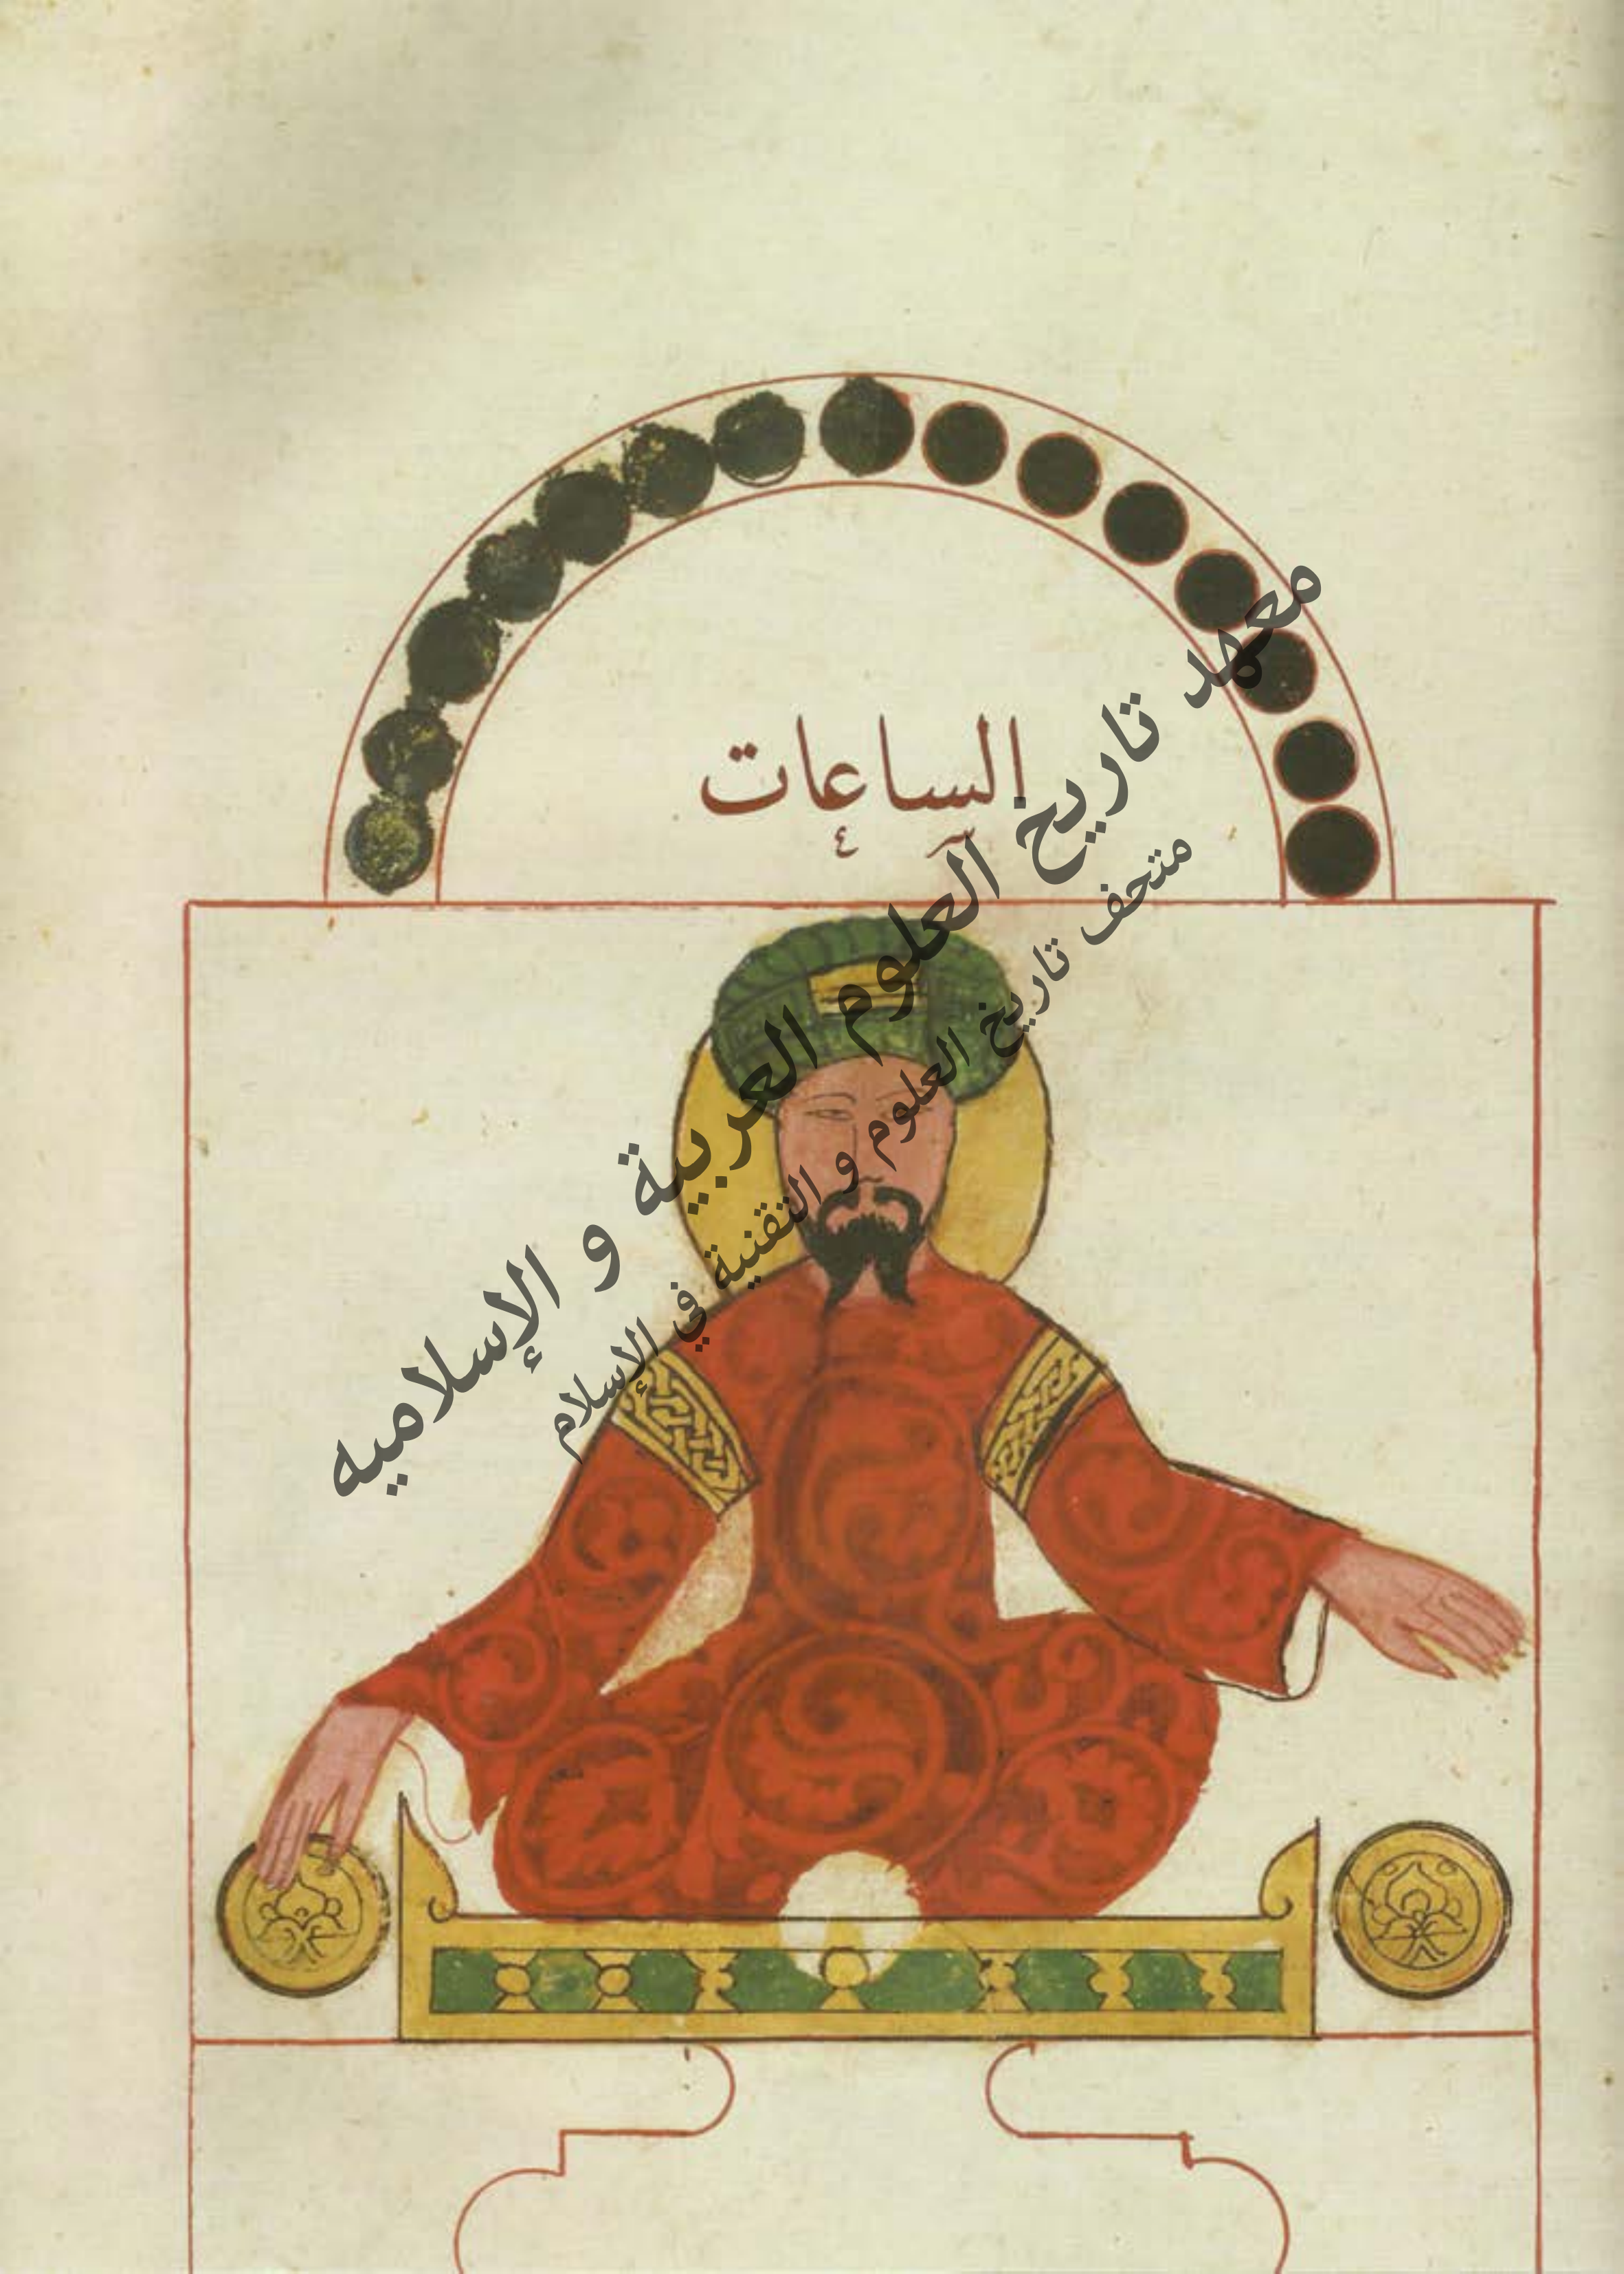 الساعات
معهد تاريخ العلوم العربية و الإسلاميه
متحف تاريخ العلوم و التقنية في الإسلام